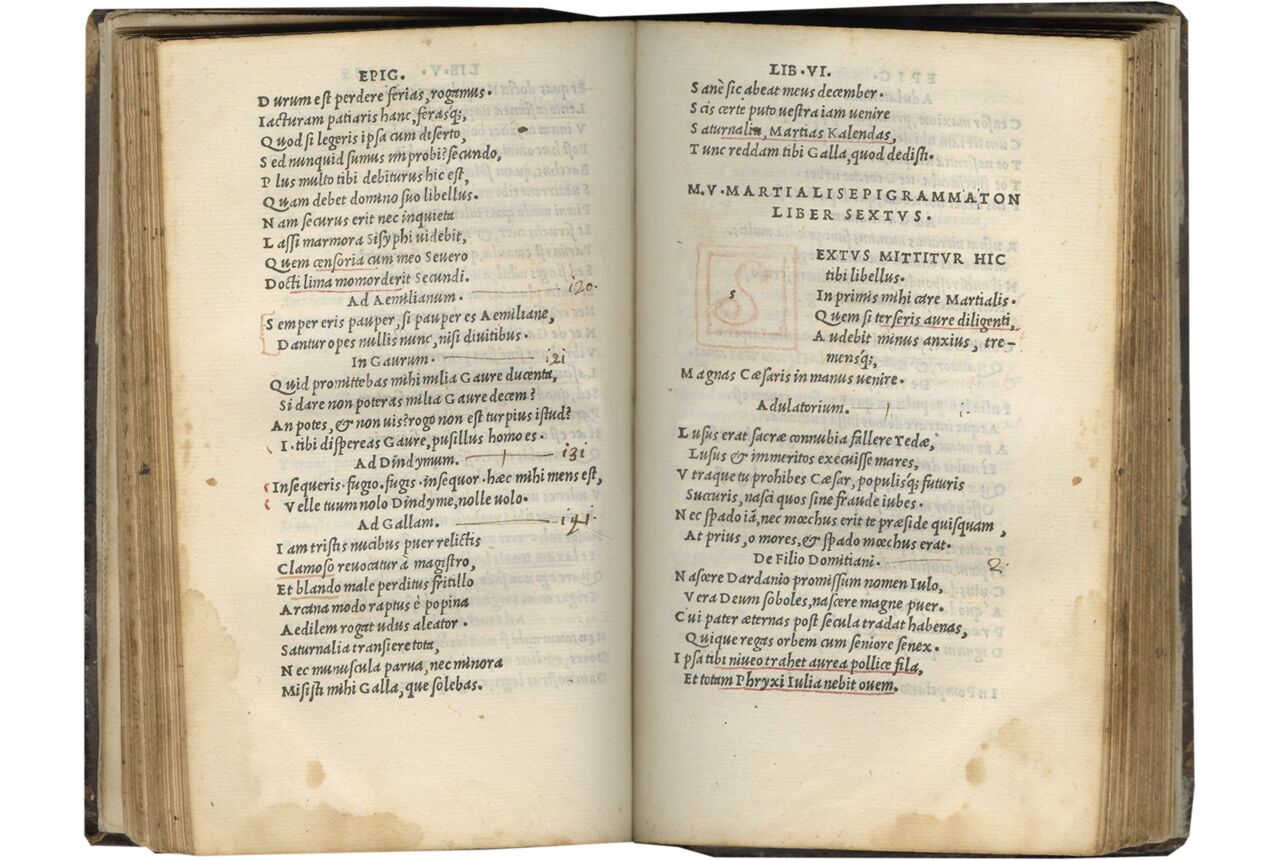 EPIG.
Durum est perdere ferias, rogamus.
Iacturam patiaris hanc, ferasq;,
Quod si legeris ipsa cum diserto,
Sed nunquid sumus improbi? secundo,
Plus multo tibi debiturus hic est,
Quam debet domino suo libellus.
Nam securus erit nec inquieta
Lassi marmora Sisyphi uidebit,
Quem censoria cum meo Seuero
Docti lima momorderit Secundi.
Ad Aemilianum. 120.
Semper eris pauper, si pauper es Aemiliane,
Dantur opes nullis nunc, nisi diuitibus.
In Gaurum. 121
Quid promittebas mihi milia Gaure ducenta,
Si dare non poteras milia Gaure decem?
An potes, & non uis? rogo non est turpius istud?
I. tibi dispereas Gaure, pusillus homo es.
Ad Dindymum. 131
Insequeris. fugio. fugis. insequor. hæc mihi mens est,
Velle tuum nolo Dindyme, nolle uolo.
Ad Gallam. 141.
Iam tristis nucibus puer relictis
Clamoso reuocatur à magistro,
Et blando male perditus fritillo
Arcana modo raptus è popina
Aedilem rogat udus aleator.
Saturnalia transiere tota,
Nec munuscula parua, nec minora
Misisti mihi Galla, que solebas.
LIB.VI.
Sanè sic abeat meus december.
Scis certè puto uestra iam uenire
Saturnalia, Martias Kalendas,
Tunc reddam tibi Galla, quod dedisti.
M.V.MARTIALIS EPIGRAMMATON
LIBER SEXTVS.
s EXTVS MITTITVR HIC
tibi libellus.
In primis mihi care Martialis.
Quem si terseris aure diligenti,
Audebit minus anxius, tre-
mensq;,
Magnas Cæsaris in manus uenire.
Adulatorium. 1.
Lusus erat sacræ connubia fallere Tedæ,
Lusus & immeritos execuisse mares,
Vtraque tu prohibes Cæsar, populisq; futuris
Succuris, nasci quos sine fraude iubes.
Nec spado iã, nec mœchus erit te præside quisquam,
At prius, o mores, & spado mœchus erat.
De Filio Domitiani. 2.
Nascere Dardanio promissum nomen Iulo,
Vera Deum soboles, nascere magne puer.
Cui pater æternas post secula tradat habenas,
Quique regas orbem cum seniore senex.
Ipsa tibi niueo trahet aurea pollice fila,
Et totam Phryxi Iulia nebit ouem.